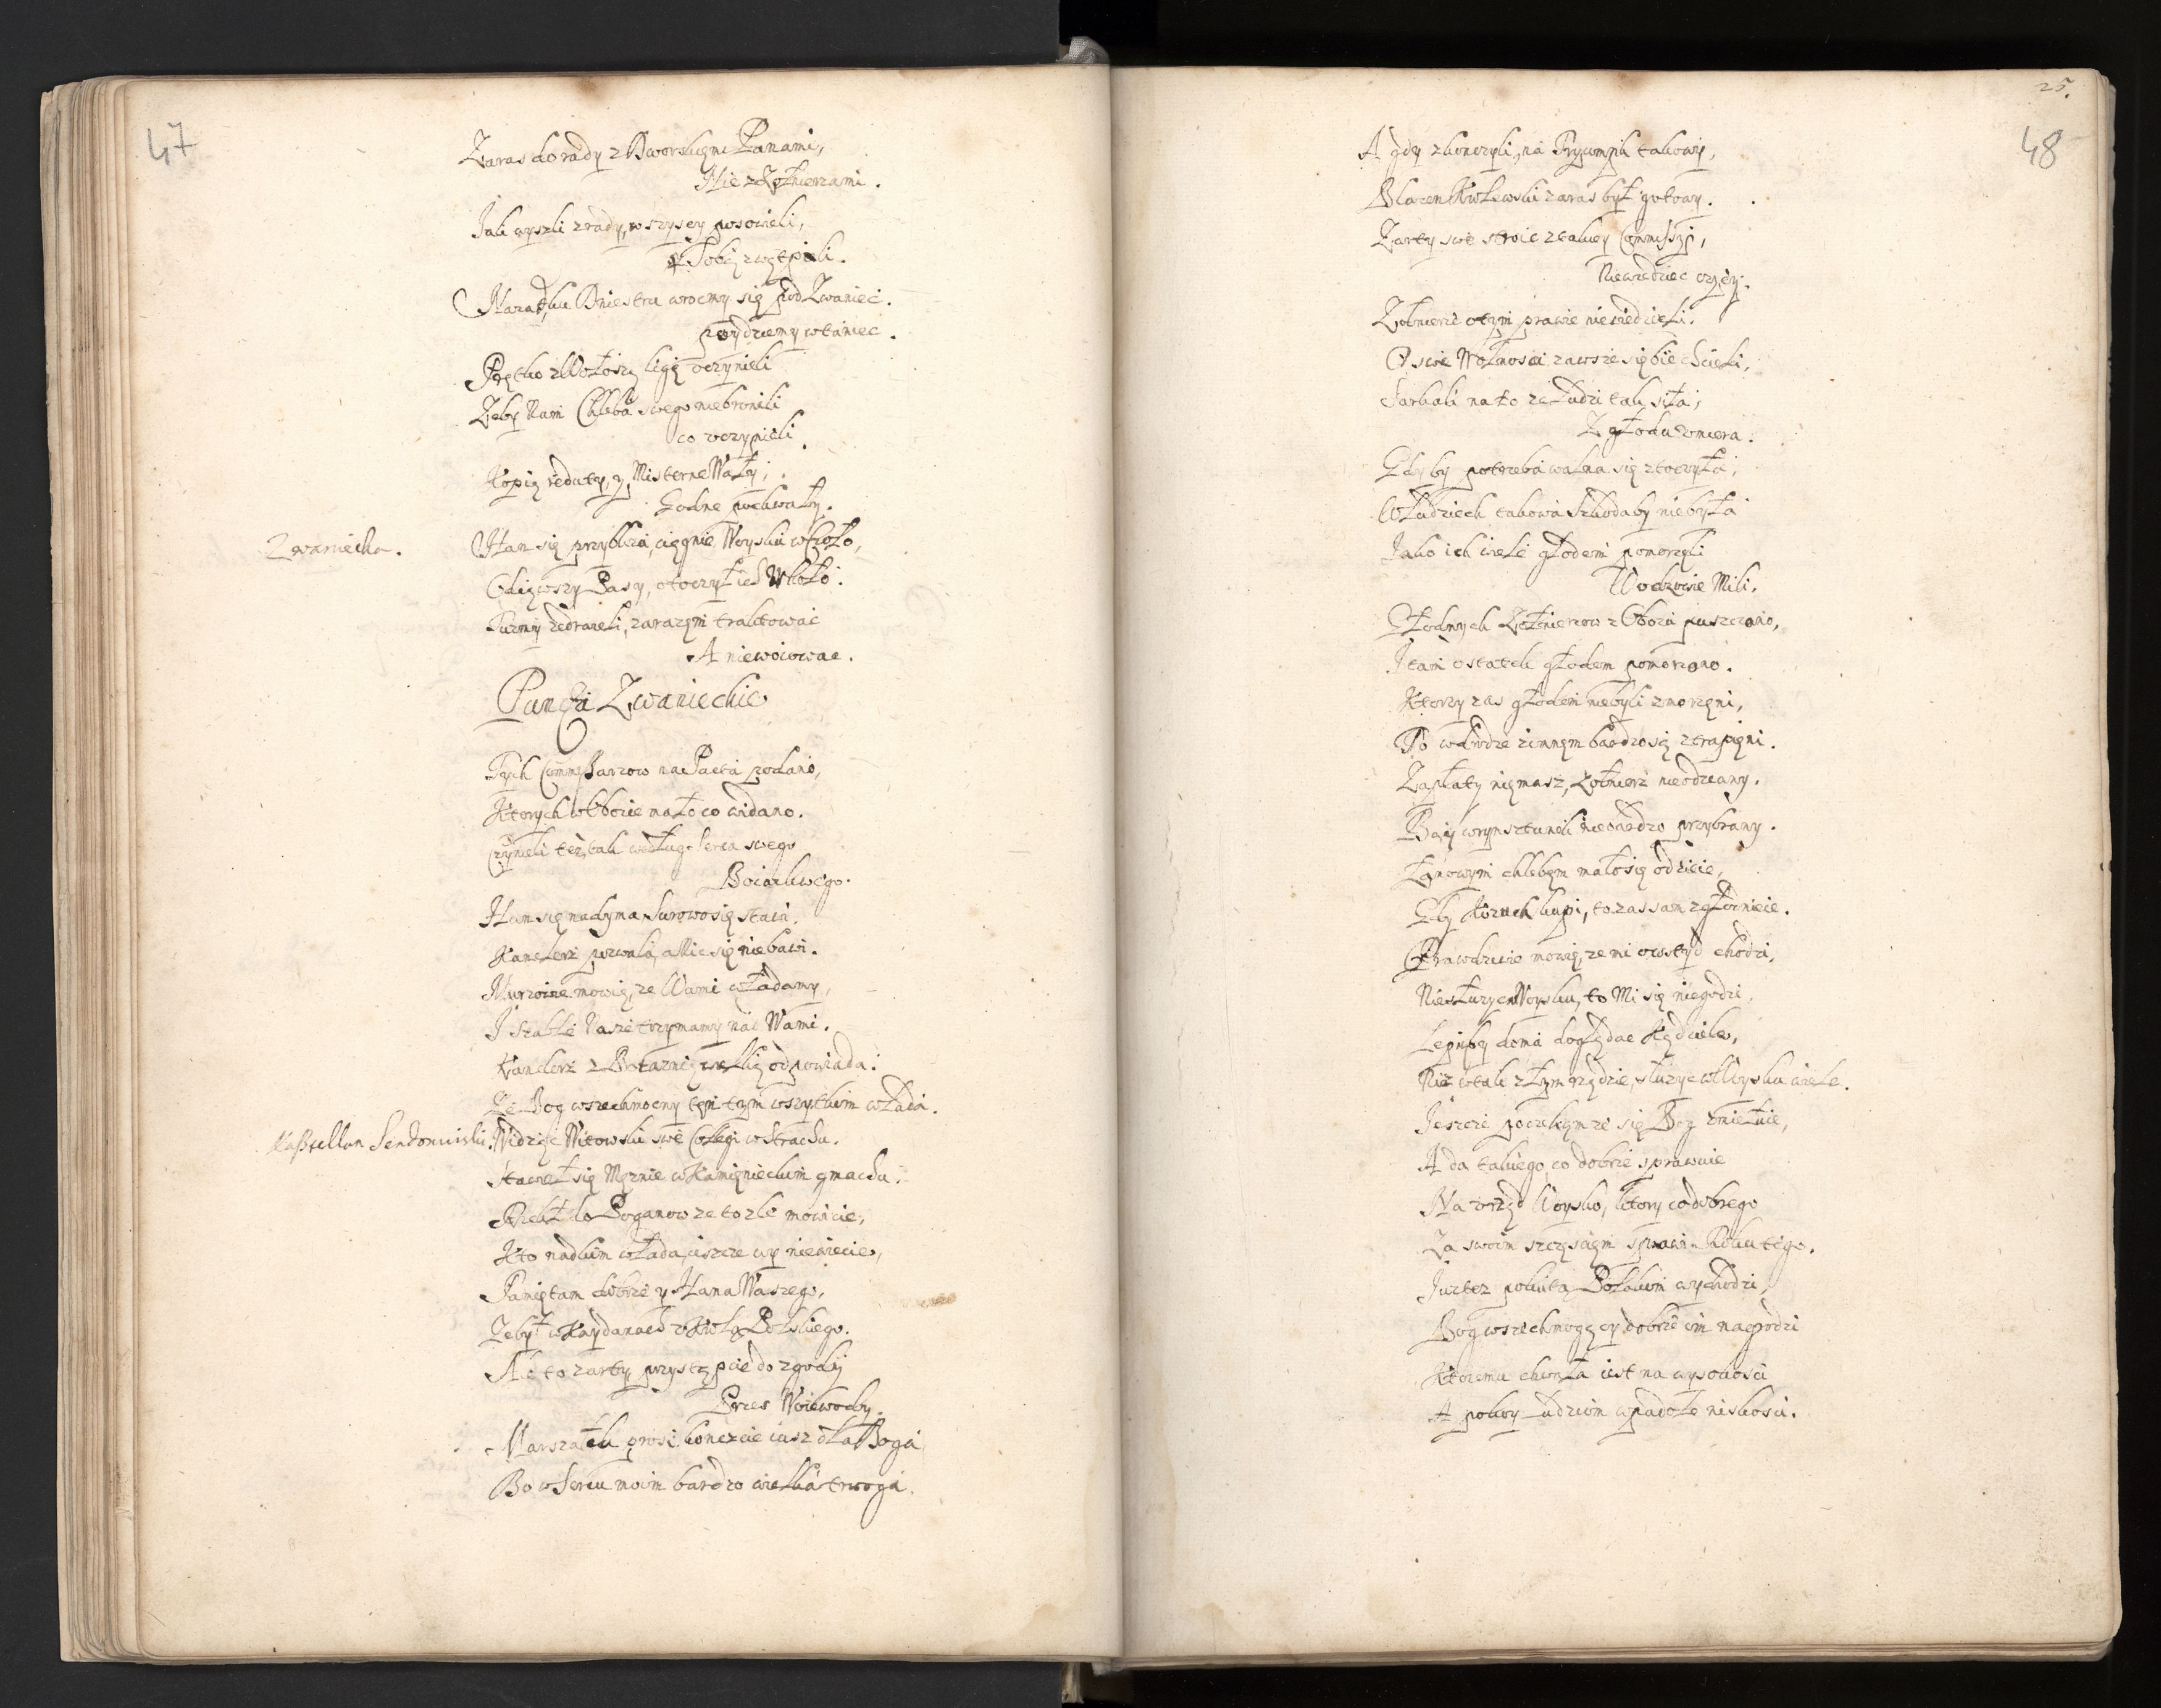 47
Zaras do rady z Dworskięmi Panami,
Nie z Zołnierzami.
Jak wyszli z rady, wszyscy posowieli,
y Sobą zwątpieli.
Nazad, ku Dniestru wrocmy się pod Zwaniec.
poydziemy w taniec.
Prętko z Wołoszą ligę uczynieli
Zeby Nam Chleba swego niebronili
co uczynieli.
Kopią reduty, y Misterne Wały;
Godne pochwały.
Zwaniecka.
Ham się przybliża, ciągnie Woysku w Czoło,
Odiąwszy Pasy, otoczył ich w koło.
zarazem traktować
A niewoiować.
Puncta Zwanieckie
Tych Commissarzow na Pacta podano,
Ktorych w Obozie mało co widano.
Czynieli też, tak według Serca swego
Boiazliwego.
Ham się nadyma, Surowo się stawi.
Kanclerz pozwala, a Nic się nie bawi.
Murzowie mowią, że Wami władamy,
I Szable Nasze trzymamy nad Wami.
Kanclerz z Boiaznią wielką odpowiada:
Ze Bog wszechmocny tem tym wszytkim włada.
Kasztellan Sendomirski.
Widząc Witowski swe Collegi w strachu.
Stawieł się Mężnie w Kamięnieckim gmachu.
Rzekł do Poganow ze to zle mowicie,
Kto nad kim włada, ieszcze wy niewiecie,
Pamiętam dobrze y Hana Waszego,
Ze był w Kaydanach u Krola Polskiego.
Nie to zarty, przystąpcie do zgody
Przes Woiewody.
Marszałek prosi, konczcie iusz dla Boga
Bo w Sercu moim bardzo wielka trwoga.
25.
48
A gdy zkonczyli, na Tryumph takowy,
Blazen Krolewski zaras był gotowy.
Zarty swe stroic z takiey Commissyi,
Niewiedziec czyiey.
Zołnierze otym prawie niewiedzieli.
O swe Wolnosci zawsze się bic chcieli,
Sarkali na to ze Ludzi tak siła,
Z głodu umiera.
Gdyby potrzeba walna się stoczyła,
W Ludziech takowa Szkoda by niebyła
Jako ich wiele głodem pomorzyli
Wodzowie Mili.
Głodnych Zołnierzow z Obozu puszczono,
I tam ostatek głodem pomorzono.
Ktorzy zas głodem niebyli zmorzęni,
To w drodze zimnęm bardzo są ztrapięni.
Zapłaty nięmasz, Zołnierz nieodziany.
niebardzo przybrany.
Łanowym chlebęm mało się odzieie,
Gdy Kozuch kupi, to zas sam zgłodnieie.
Prawdziwie mowię, ze mi o wstyd chodzi,
Niesłuzyc w Woysku, to Mi się niegodzi,
Lepieby doma doględac Kądziele,
Niz w tak złym rządzie, słuzyc w Woysku wiele.
Jeszcze poczekęm ze się Bog zmiełuie,
A da takiego, co dobrze sprawuie
Na urząd Woysko, ktory co dobrego
Za swoim szczęsciem sprawi Roku tego.
Juz tez pokuta Polakom wychodzi,
Bog wszechmogący dobrze im nagrodzi
Ktoremu chwała iest na wysokosci
A pokoy Ludziom w padole niskosci.